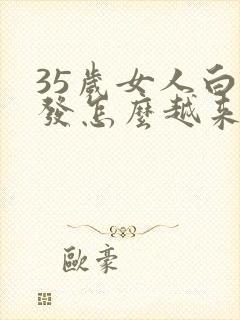 35歲女人白
發怎麼越來
歐豪